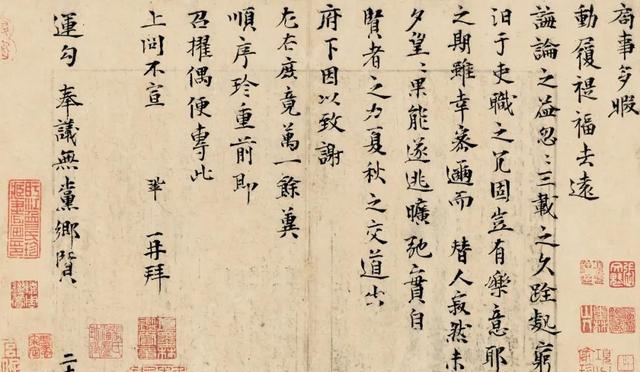 局事多暇
動履禔福去遠
誨論之益忽〻三載之久跧處窮
汨于吏職之冗固豈有樂意耶
之期雖幸密邇而替人寂然未
夕望〻果能遂逃曠弛實自
賢者之力夏秋之交道出
府下因以致謝
左右庶竟萬一餘冀
順序珍重前即
召擢偶便專此
上問不宣 鞏 再拜
運勾 奉議無黨鄉賢
二十